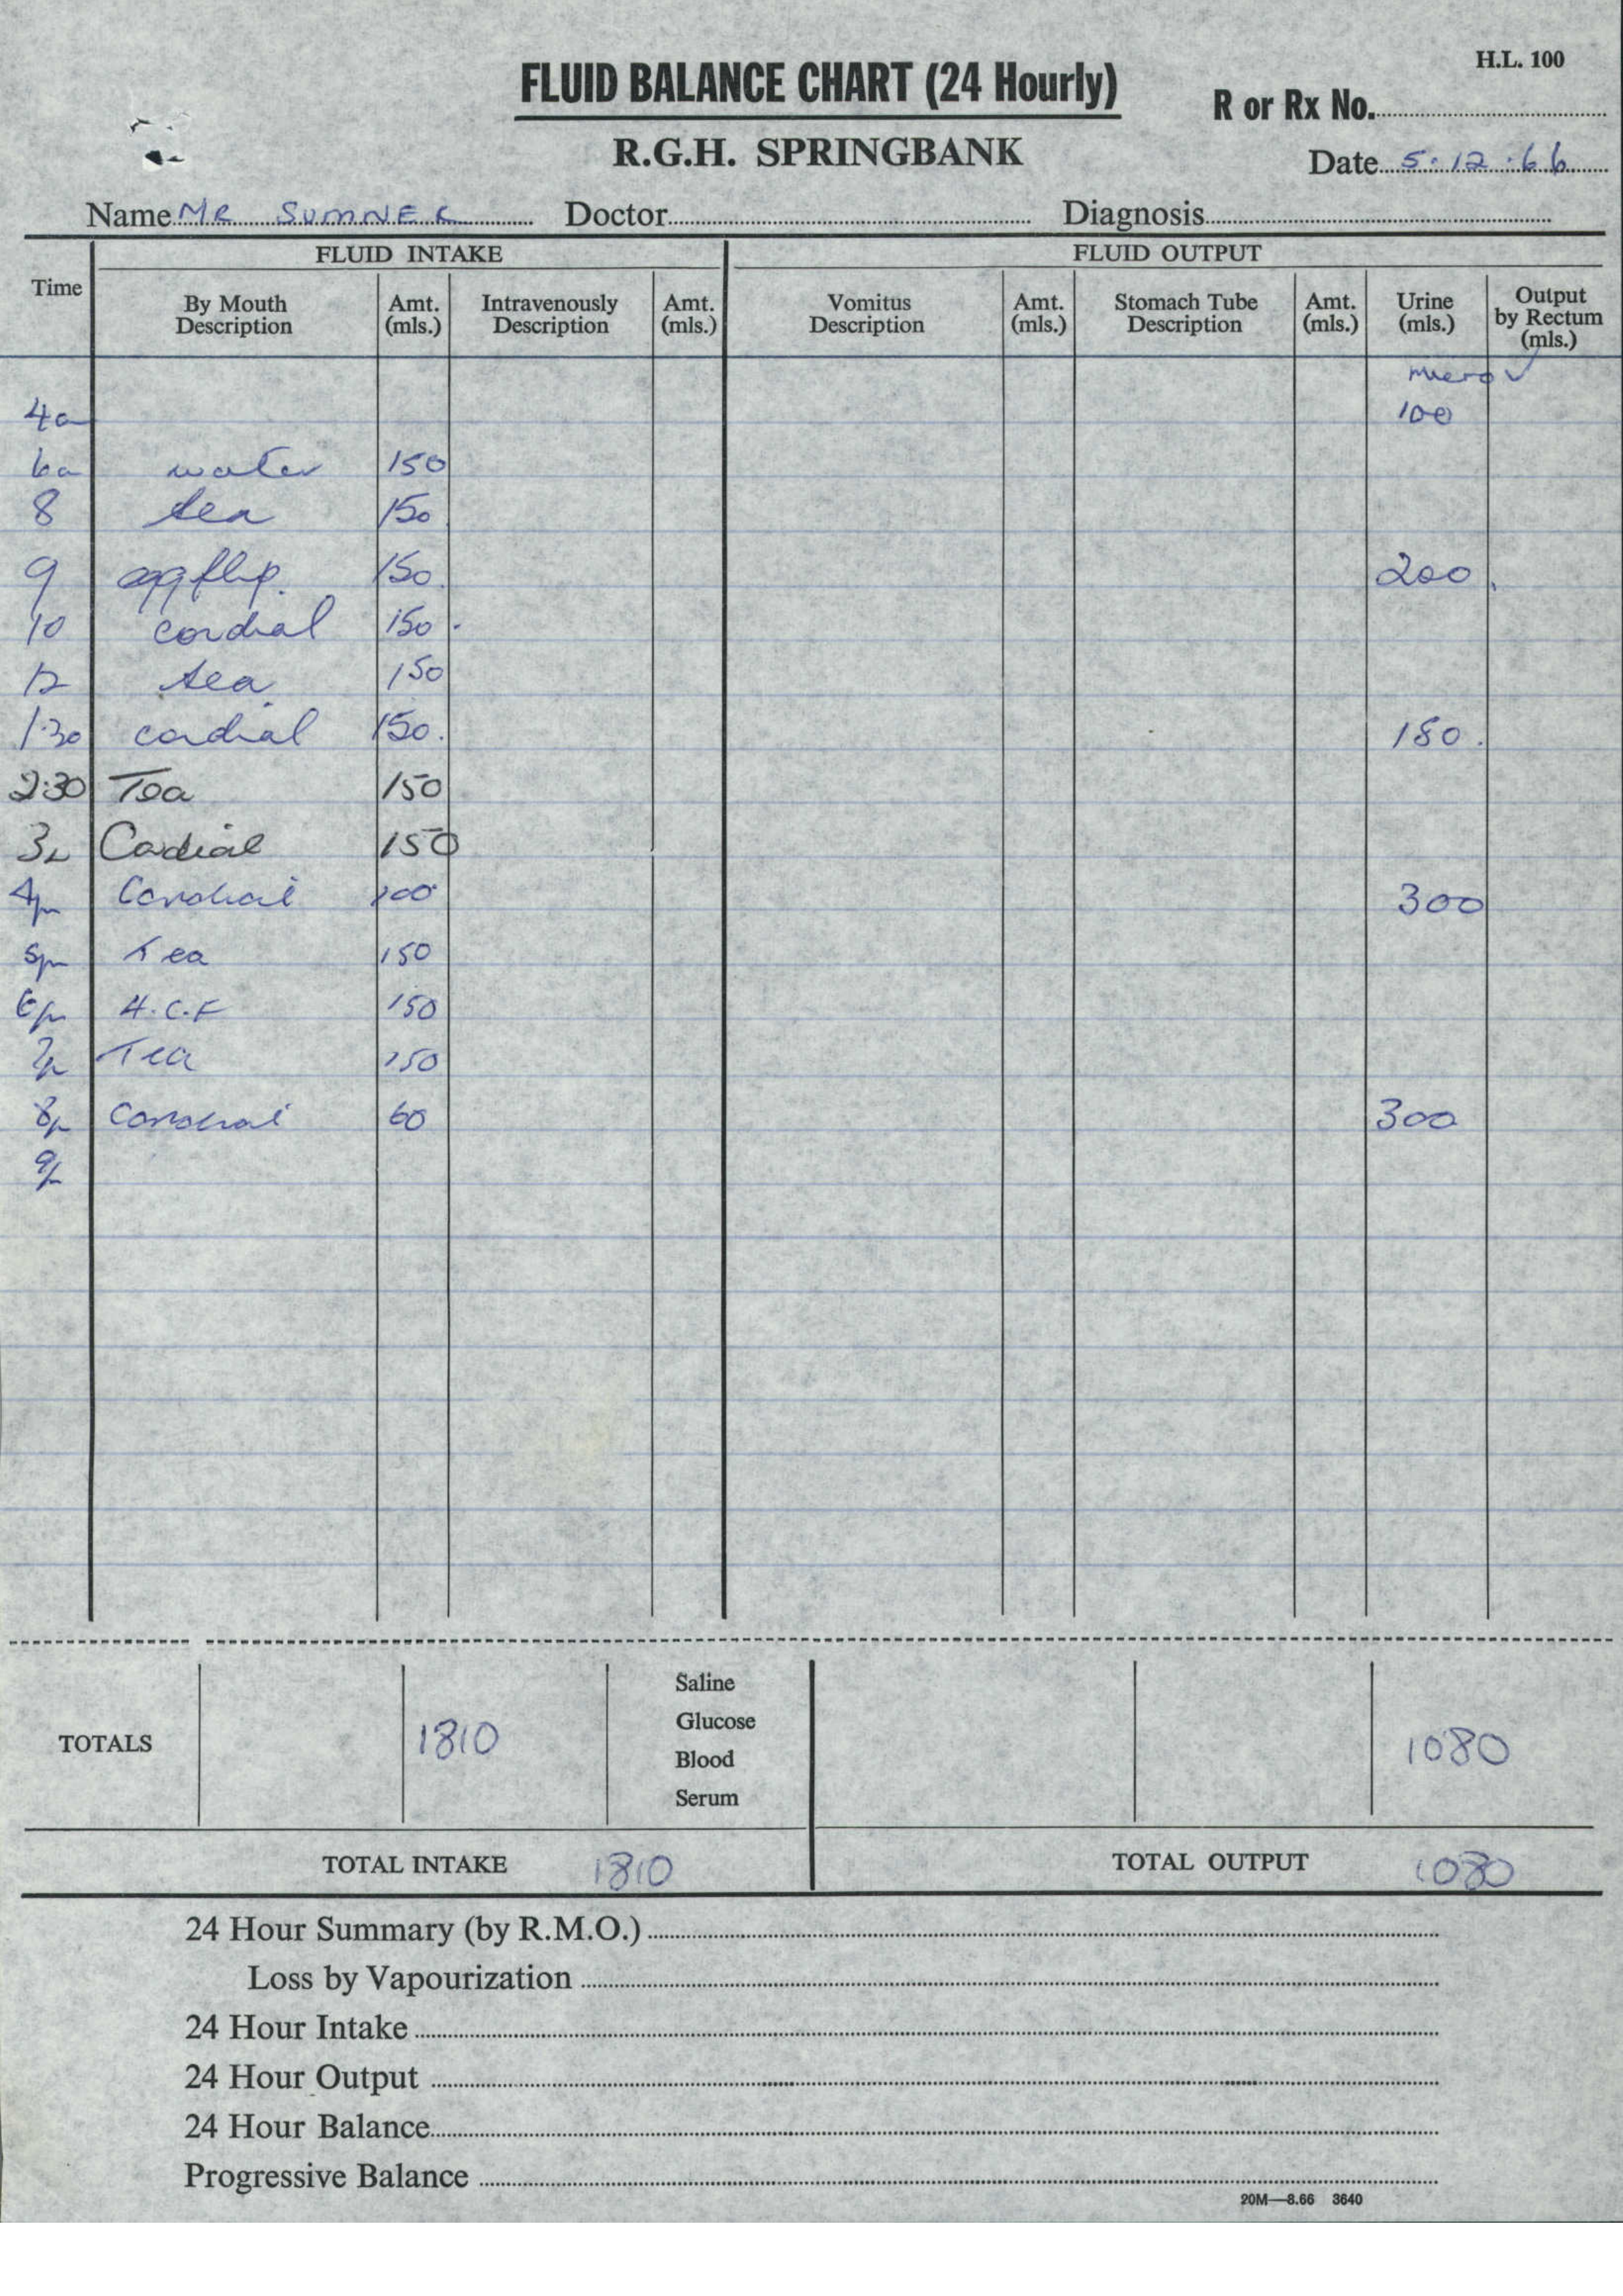 H.L. 100
FLUID BALANCE CHART (24 Hourly)
R or Rx No.
R.G.H. SPRINGBANK
Date 5.12.66
Name MR SUMNER Doctor Diagnosis
FLUID INTAKE FLUID OUTPUT
Time By Mouth Description Amt. (mls.) Intravenously Description Amt. (mls.) Vomitus Description Amt. (mls.) Stomach Tube Description Amt. (mls.) Urine (mls.) Output by Rectum (mls.)
micro ✓
4a 100
6a water 150
8 tea 150
9 eggflip. 150. 200.
10 cordial 150.
12 tea 150
1.30 cordial 150. 180.
2:30 Tea 150
3p Cordial 150
4pm Cordial 100 300
5pm Tea 150
6pm H.C.F 150
7p Tea 150
8p Cordial 60 300
9p
TOTALS 1810 Saline Glucose Blood Serum 1080
TOTAL INTAKE 1810 TOTAL OUTPUT 1080
24 Hour Summary (by R.M.O.)
Loss by Vapourization
24 Hour Intake
24 Hour Output
24 Hour Balance
Progressive Balance
20M—8.66 3640